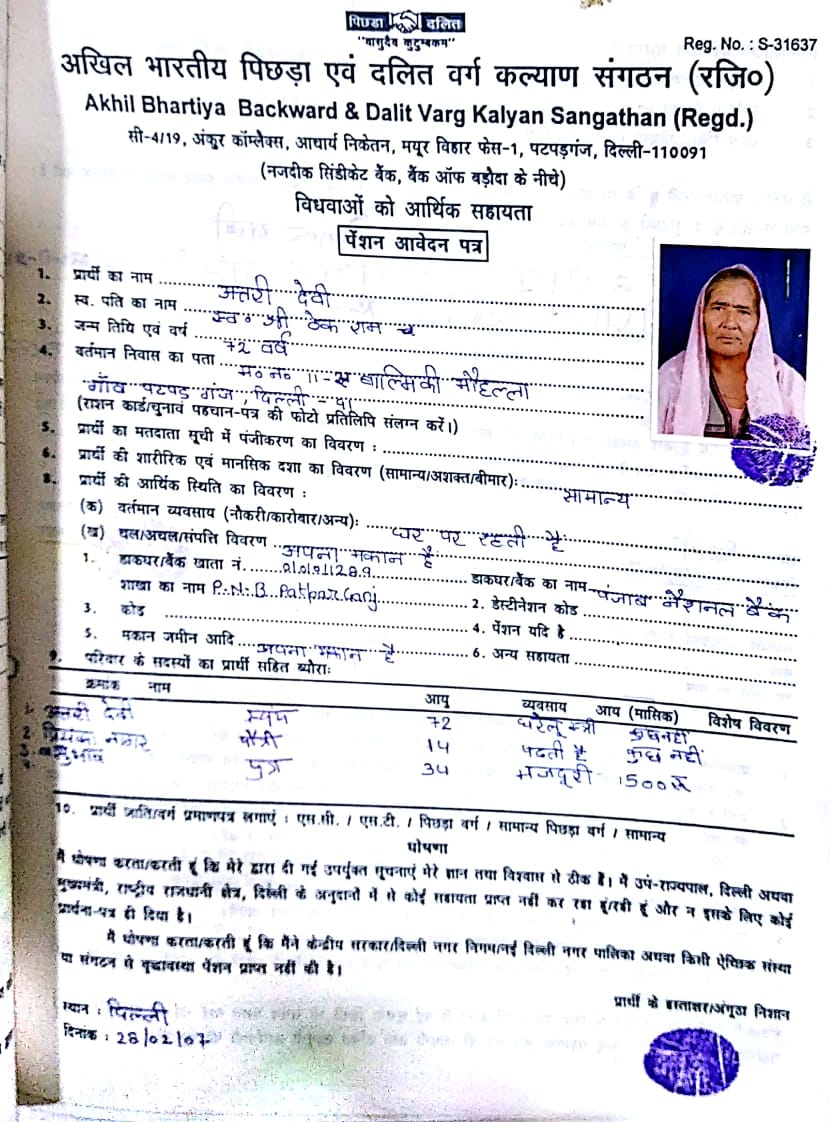 पिछड़ा दलित
"वासुदेव कुटुम्बकम"
Reg. No. : S-31637
अखिल भारतीय पिछड़ा एवं दलित वर्ग कल्याण संगठन (रजि०)
Akhil Bhartiya Backward & Dalit Varg Kalyan Sangathan (Regd.)
सी-4/19, अंकुर कॉम्लैक्स, आचार्य निकेतन, मयूर विहार फेस-1, पटपड़गंज, दिल्ली-110091
(नजदीक सिंडीकेट बैंक, बैंक ऑफ बड़ौदा के नीचे)
विधवाओं को आर्थिक सहायता
पेंशन आवेदन पत्र
1. प्रार्थी का नाम अत्तरी देवी
2. स्व. पति का नाम स्व० श्री टेक राम
3. जन्म तिथि एवं वर्ष 72 वर्ष
4. वर्तमान निवास का पता म० न० 11-ए बाल्मिकी मौहल्ला
गाँव पटपड़ गंज, दिल्ली - 91
(राशन कार्ड/चुनाव पहचान-पत्र की फोटो प्रतिलिपि संलग्न करें।)
5. प्रार्थी का मतदाता सूची में पंजीकरण का विवरण :
6. प्रार्थी की शारीरिक एवं मानसिक दशा का विवरण (सामान्य/अशक्त/बीमार): सामान्य
8. प्रार्थी की आर्थिक स्थिति का विवरण :
(क) वर्तमान व्यवसाय (नौकरी/कारोबार/अन्य): घर पर रहती है
(ख) चल/अचल/संपत्ति विवरण अपना मकान है
1. डाकघर/बैंक खाता नं. डाकघर/बैंक का नाम पंजाब नैशनल बैंक
शाखा का नाम P.N.B. Patpar Ganj 2. डेस्टीनेशन कोड
3. कोड 4. पेंशन यदि है
5. मकान जमीन आदि अपना मकान है 6. अन्य सहायता
9. परिवार के सदस्यों का प्रार्थी सहित ब्यौराः
क्रमांक नाम आयु व्यवसाय आय (मासिक) विशेष विवरण
1. अत्तरी देवी स्वयं 72 घरेलू स्त्री कुछ नहीं
2. प्रियंका नागर पौत्री 14 पढती है कुछ नहीं
3. पुत्र 34 मजदूरी 1500 रू
10. प्रार्थी जाति/वर्ग प्रमाणपत्र लगाएं : एस.सी. / एस.टी. / पिछड़ा वर्ग / सामान्य पिछड़ा वर्ग / सामान्य
घोषणा
मैं घोषणा करता/करती हूं कि मेरे द्वारा दी गई उपर्युक्त सूचनाएं मेरे ज्ञान तथा विश्वास से ठीक है। मैं उप-राज्यपाल, दिल्ली अथवा
मुख्यमंत्री, राष्ट्रीय राजधानी क्षेत्र, दिल्ली के अनुदानों में से कोई सहायता प्राप्त नहीं कर रहा हूं/रही हूं और न इसके लिए कोई
प्रार्थना-पत्र ही दिया है।
मैं घोषणा करता/करती हूं कि मैंने केन्द्रीय सरकार/दिल्ली नगर निगम/नई दिल्ली नगर पालिका अथवा किसी ऐच्छिक संस्था
या संगठन से वृद्धावस्था पेंशन प्राप्त नहीं की है।
प्रार्थी के हस्ताक्षर/अंगूठा निशान
स्थान : दिल्ली
दिनांक : 28/02/07